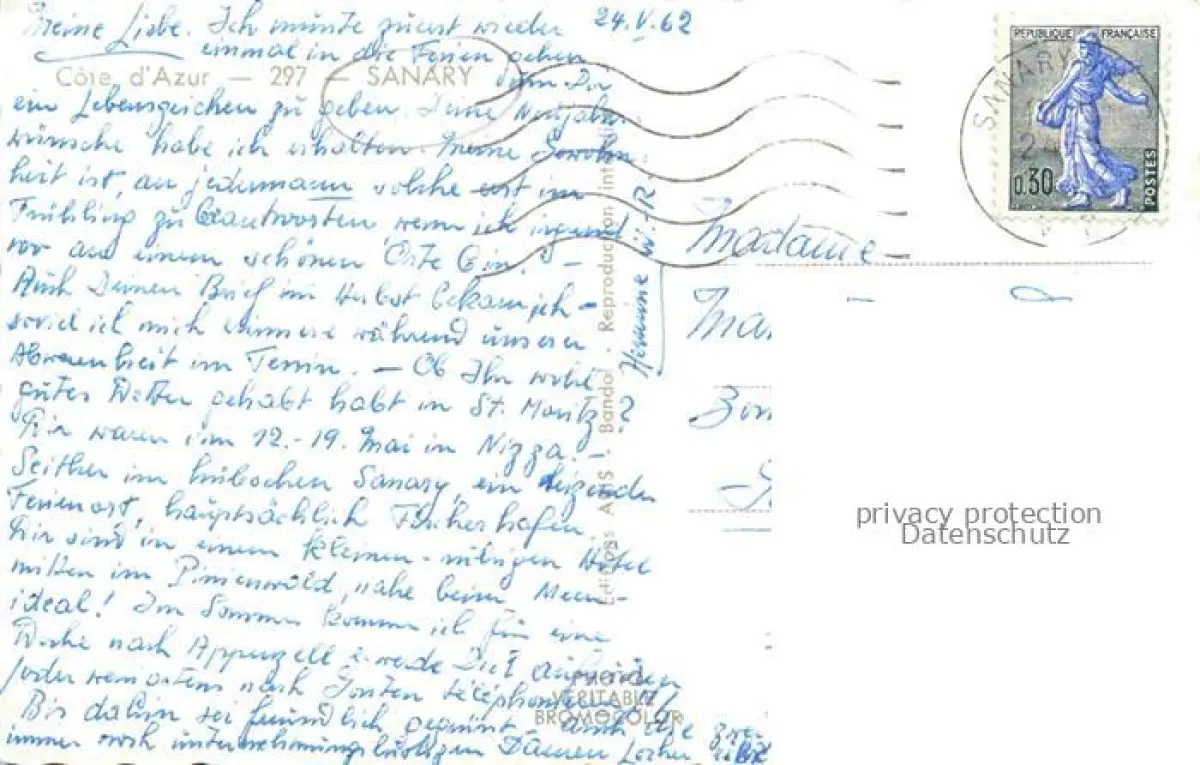 Meine Liebe. Ich musste zuerst wieder 24.V.62
einmal in die Ferien gehen
Côte d'Azur — 297 — SANARY um Dir
ein Lebenszeichen zu geben. Deine Neujahrs-
wünsche habe ich erhalten. Meine Gewohn-
heit ist, an jedermann solche erst im
Frühling zu beantworten wenn ich irgend
wo an einem schönen Orte bin. –
Auch Deinen Brief im Herbst bekam ich –
soviel ich mich erinnere während unserer
Abwesenheit im Tessin. – Ob Ihr wohl
gutes Wetter gehabt habt in St. Moritz?
Wir waren vom 12.-19. Mai in Nizza. –
Seither im hübschen Sanary, ein reizender
Ferienort, hauptsächlich Fischerhafen.
Wir sind in einem kleinen – ruhigen Hotel
mitten im Pinienwald nahe beim Meer –
ideal! Im Sommer komme ich für eine
Woche nach Appenzell & werde Dich
oder wenigstens nach telephonieren
Bis dahin sei freundlich gegrüsst, auch
immer noch unternehmungslustigen Damen
Editions AMS - Bandol - Reproduction
PHOTO
VERITABLE
BROMOCOLOR
Madame
REPUBLIQUE FRANÇAISE
0,30
POSTES
SANARY
privacy protection
Datenschutz